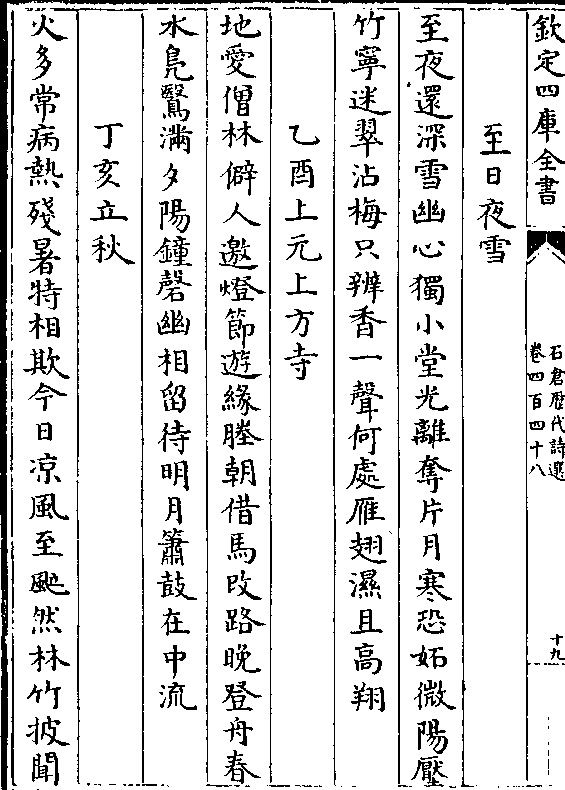 欽定四庫全書
石倉歴代詩選
卷四百四十八
十九
至日夜雪
至夜還深雪幽心獨小堂光離奪片月寒恐妬微陽壓
竹寧迷翠沾梅只辨香一聲何處雁翅濕且高翔
乙酉上元上方寺
地愛僧林僻人邀燈節遊緣塍朝借馬改路晚登舟春
水鳬鷖滿夕陽鐘磬幽相留待明月簫鼓在中流
丁亥立秋
火多常病熱殘暑特相欺今日凉風至颯然林竹披聞